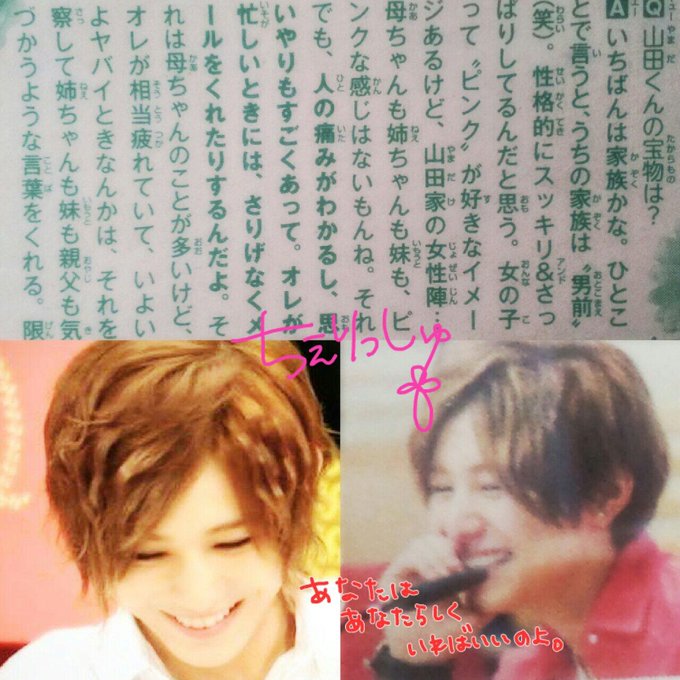 Q 山田くんの宝物は?
A いちばんは家族かな。ひとこ
とで言うと、うちの家族は〝男前〟
(笑)。性格的にスッキリ&さっ
ぱりしてるんだと思う。女の子
って〝ピンク〟が好きなイメー
ジあるけど、山田家の女性陣…
母ちゃんも姉ちゃんも妹も、ピ
ンクな感じはないもんね。それ
でも、人の痛みがわかるし、思
いやりもすごくあって。オレが
忙しいときには、さりげなくメ
ールをくれたりするんだよ。そ
れは母ちゃんのことが多いけど、
オレが相当疲れていて、いよい
よヤバイときなんかは、それを
察して姉ちゃんも妹も親父も気
づかうような言葉をくれる。限
ちぇりっしゅ
あなたは
あなたらしく
いればいいのよ。